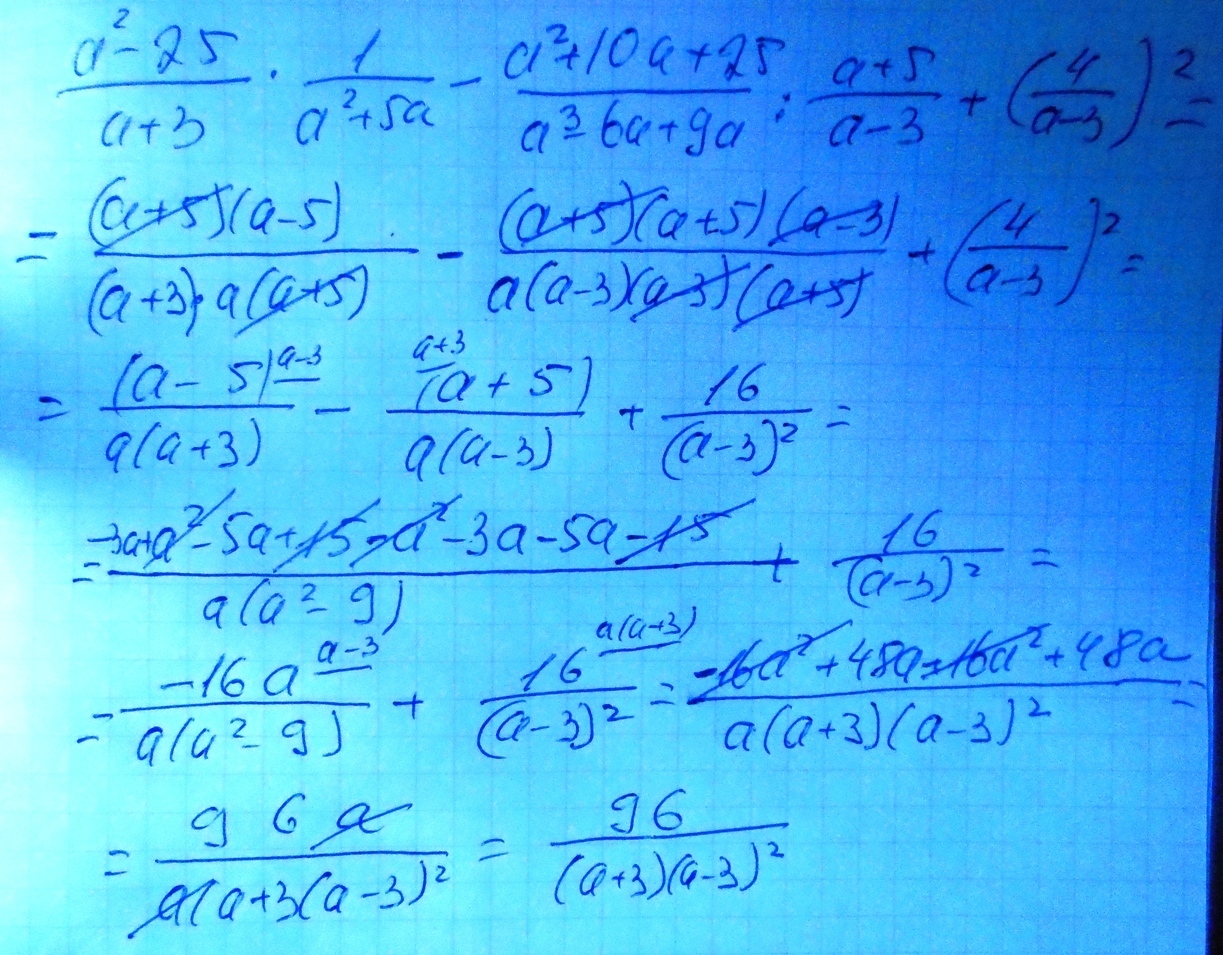 (a²-25)/(a+3) · 1/(a²+5a) - (a²+10a+25)/(a³-6a+9a) : (a+5)/(a-3) + (4/(a-3))² =
= ((a+5)(a-5))/((a+3)·a(a+5)) - ((a+5)(a+5)(a-3))/(a(a-3)(a-3)(a+5)) + (4/(a-3))² =
= ((a-5)^{a-3})/(a(a+3)) - (^{a+3}(a+5))/(a(a-3)) + 16/(a-3)² =
= (-3a+a²-5a+15-a²-3a-5a-15)/(a(a²-9)) + 16/(a-3)² =
= (-16a^{a-3})/(a(a²-9)) + (16^{a(a+3)})/(a-3)² = (-16a²+48a+16a²+48a)/(a(a+3)(a-3)²) =
= (96a)/(a(a+3(a-3)²) = 96/((a+3)(a-3)²)